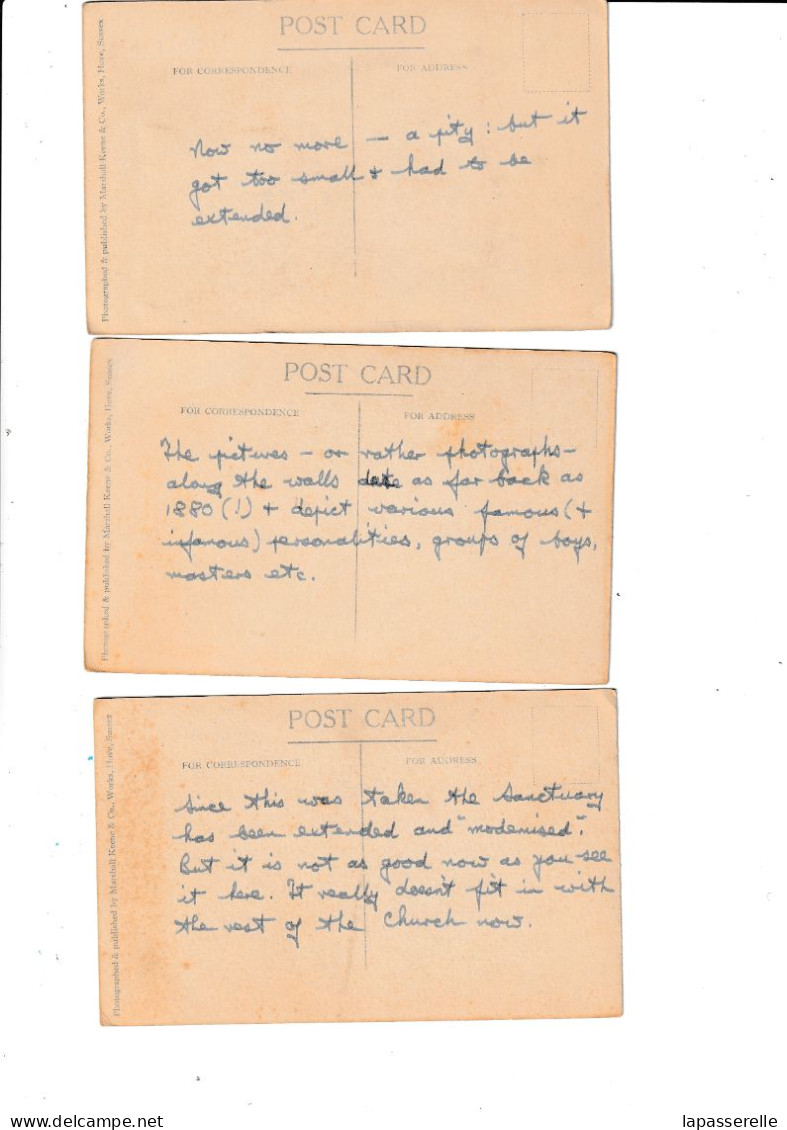 POST CARD
FOR CORRESPONDENCE
FOR ADDRESS
Photographed & published by Marshall Keene & Co., Works, Hove, Sussex
Now no more – a pity: but it
got too small & had to be
extended.
POST CARD
FOR CORRESPONDENCE
FOR ADDRESS
Photographed & published by Marshall Keene & Co., Works, Hove, Sussex
The pictures – or rather photographs –
along the walls date as far back as
1880 (!) & depict various famous (&
infamous) personalities, groups of boys,
masters etc.
POST CARD
FOR CORRESPONDENCE
FOR ADDRESS
Photographed & published by Marshall Keene & Co., Works, Hove, Sussex
Since this was taken the Sanctuary
has been extended and "modenised".
But it is not as good now as you see
it here. It really doesn't fit in with
the rest of the Church now.
delcampe.net
lapasserelle